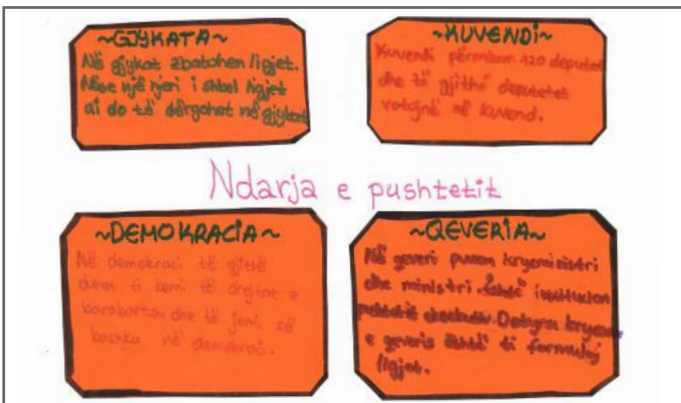 ~GJYKATA~
Në gjykat zbatohen ligjet.
Nëse një njeri i shkel ligjet
ai do të dërgohet në gjykatë
~KUVENDI~
Kuvendi përmban 120 deputet
dhe të gjithë deputetet
votojnë në Kuvend.
Ndarja e pushtetit
~DEMOKRACIA~
Në demokraci të gjithë
duhet ti kemi të drejtat e
barabarta dhe të jemi së
bashku në demokraci.
~QEVERIA~
Në qeveri punon kryeministri
dhe ministri. Është institucion
ekzekutiv. Detyra kryesore
e qeveris është ti formuloj
ligjet.